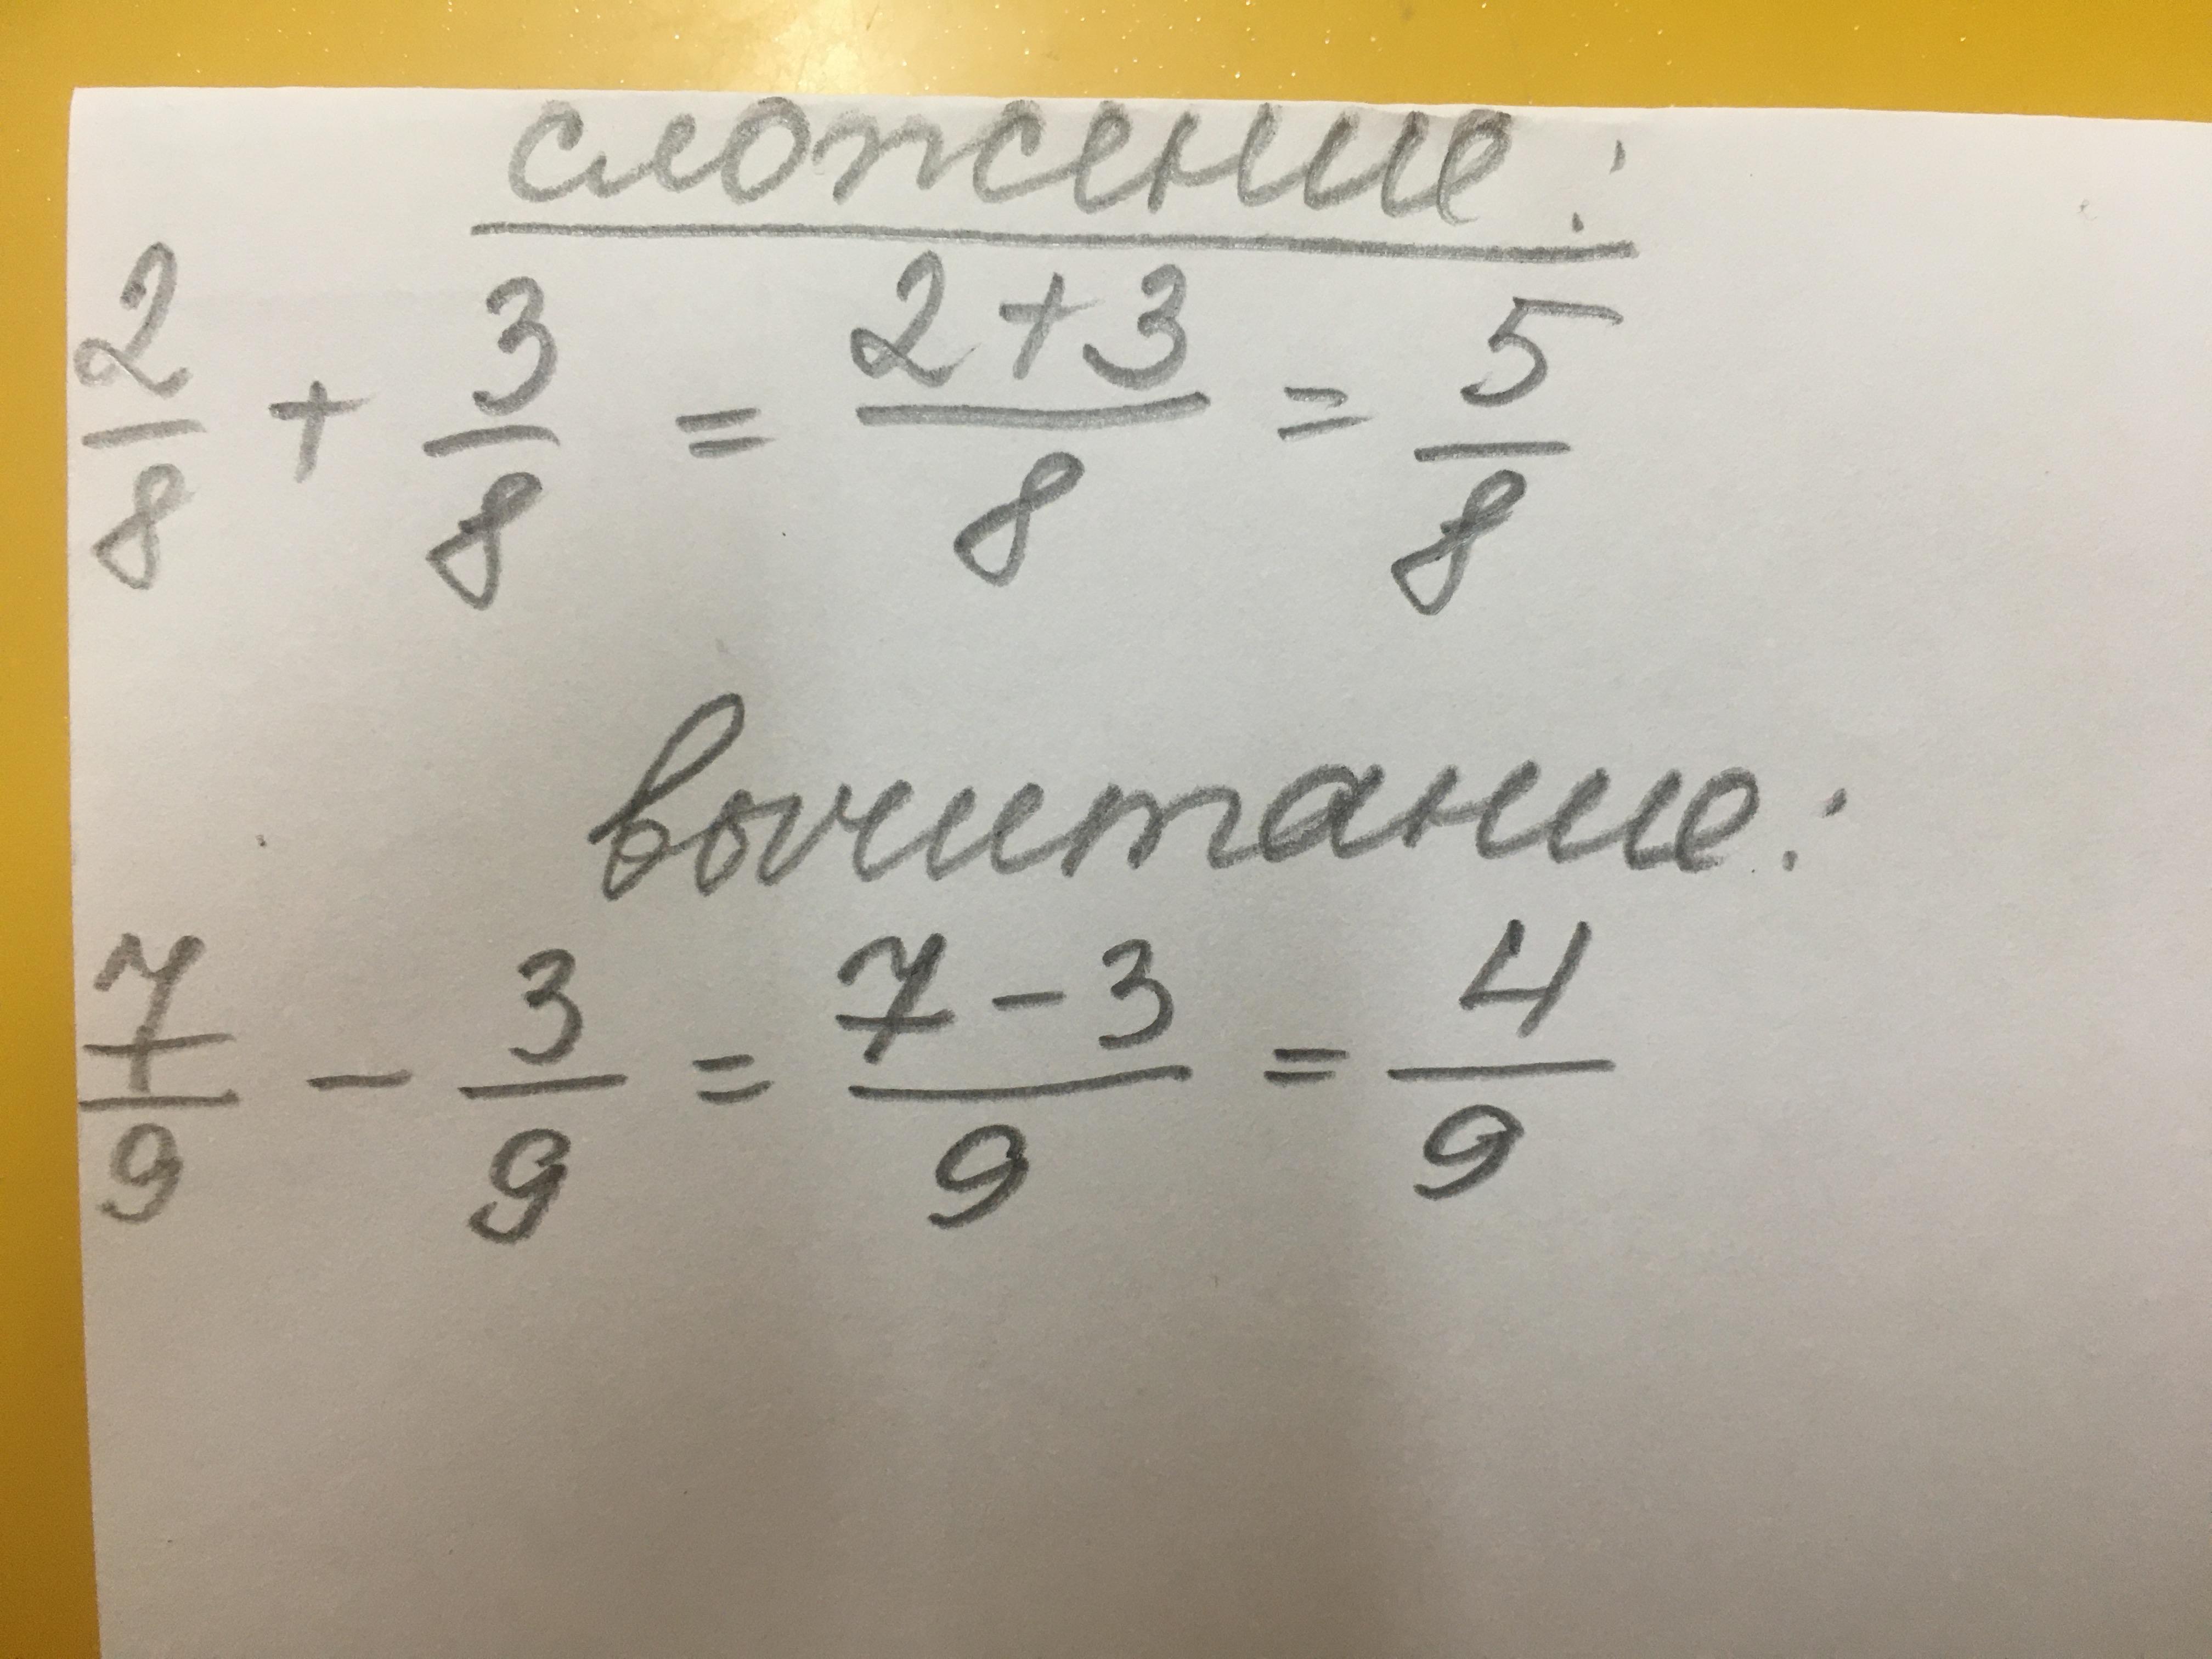 сложение:
2/8 + 3/8 = 2+3/8 = 5/8
вычитание:
7/9 - 3/9 = 7-3/9 = 4/9